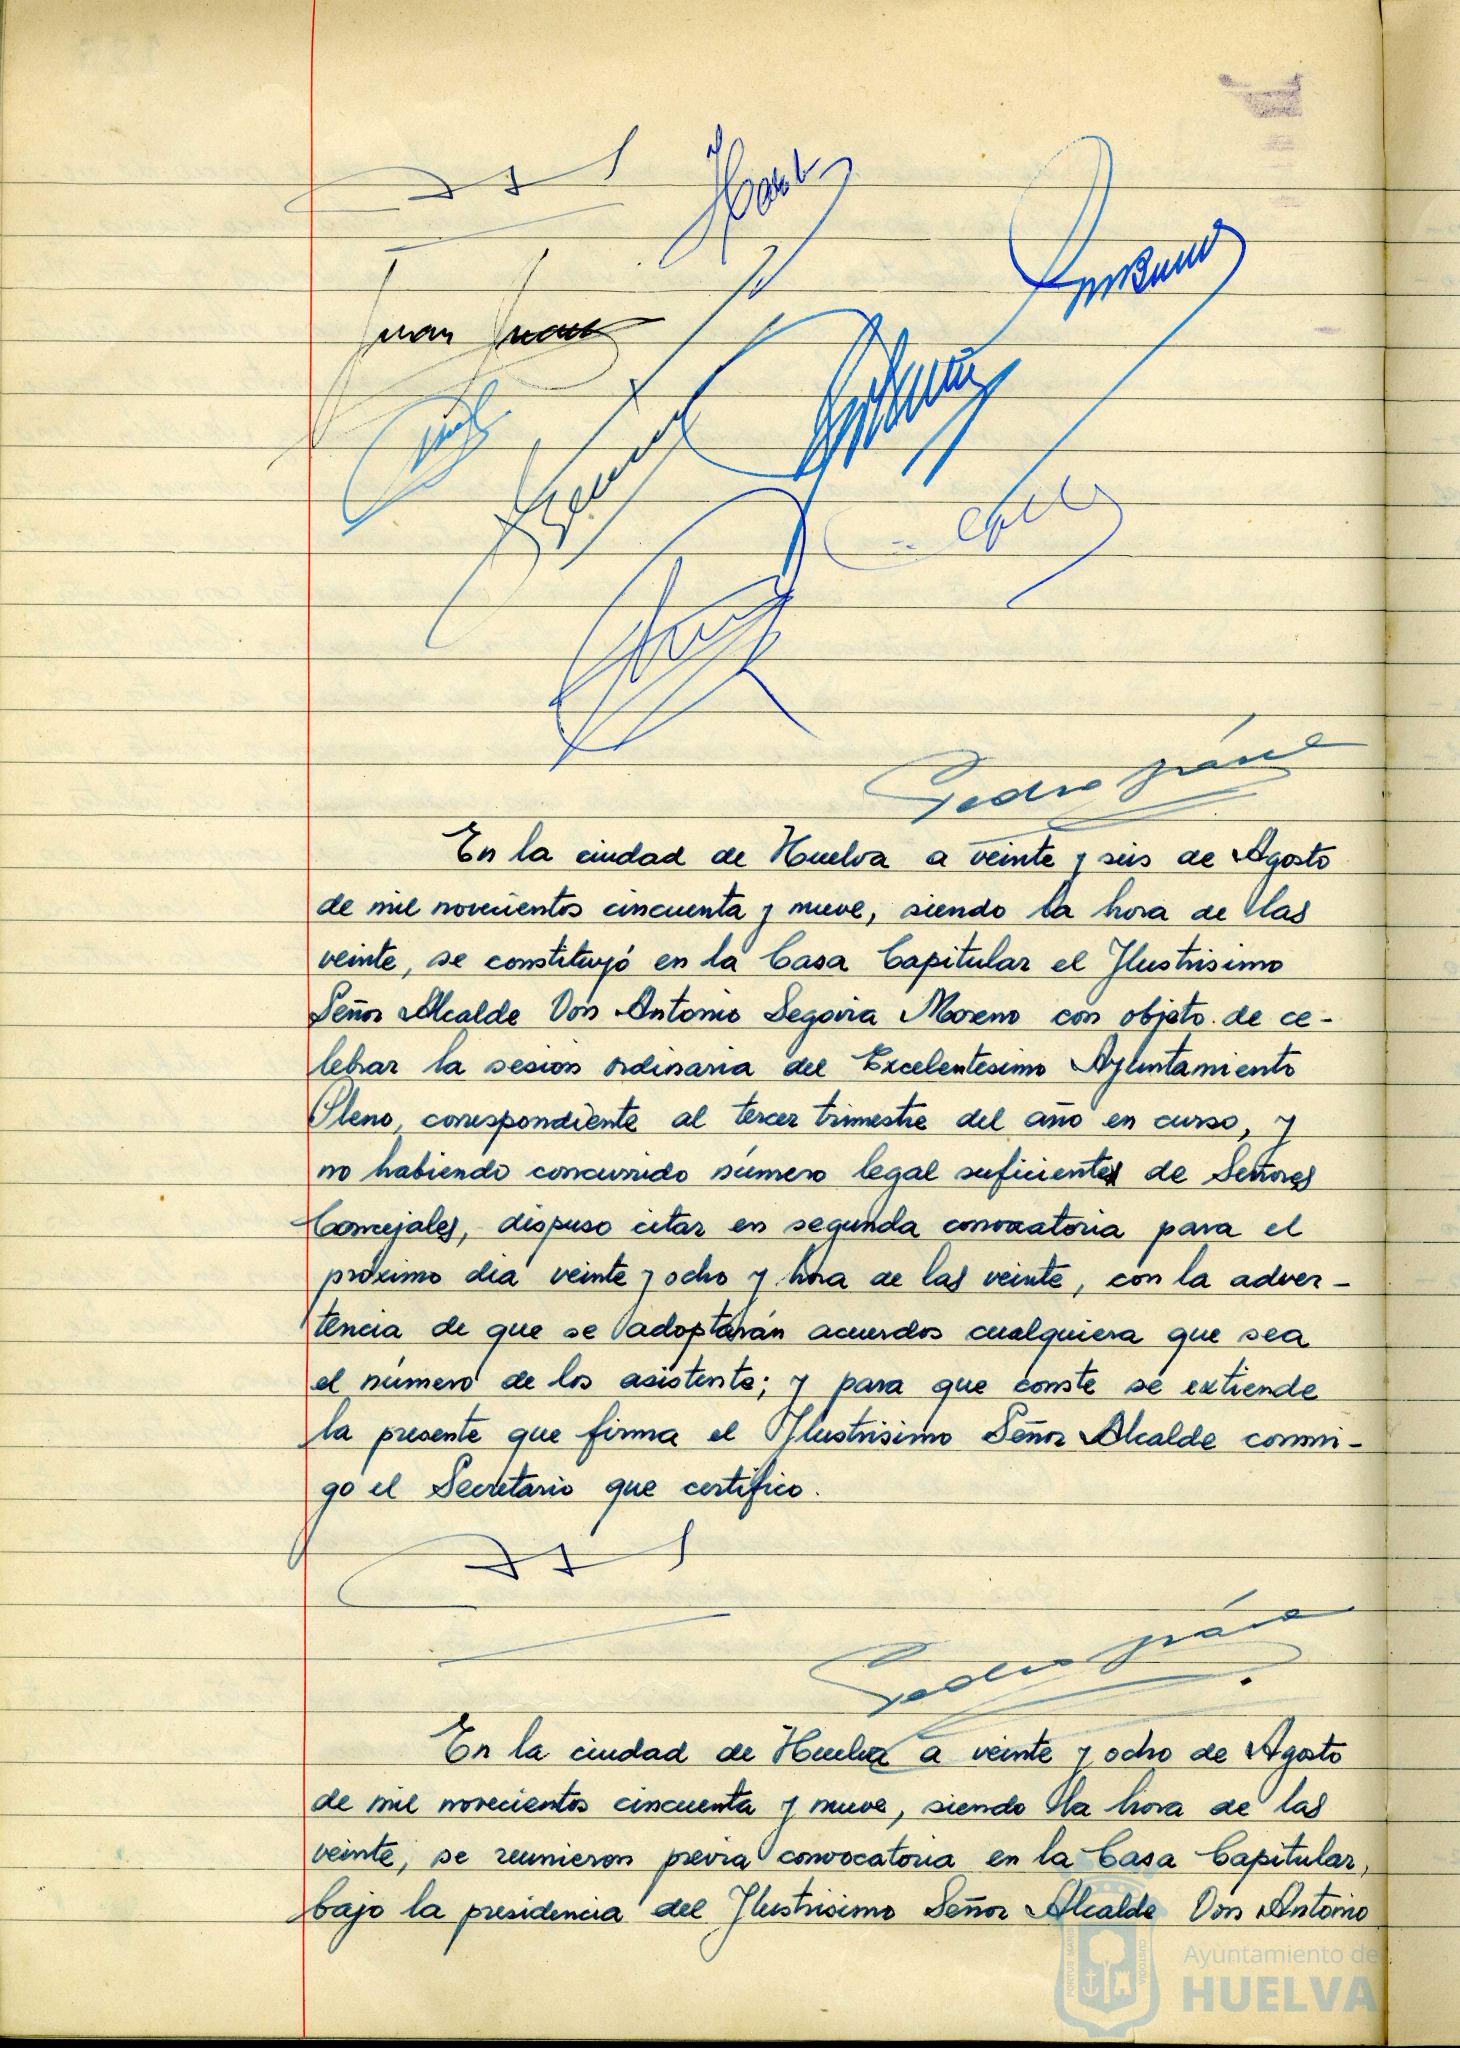 Juan
Pedro
En la ciudad de Huelva a veinte y seis de Agosto
de mil novecientos cincuenta y nueve, siendo la hora de las
veinte, se constituyó en la Casa Capitular el Ilustrisimo
Señor Alcalde Don Antonio Segovia Moreno con objeto de ce-
lebrar la sesion ordinaria del Excelentesimo Ayuntamiento
Pleno, correspondiente al tercer trimestre del año en curso, y
no habiendo concurrido número legal suficientes de Señores
Concejales, dispuso citar en segunda convocatoria para el
próximo dia veinte y ocho y hora de las veinte, con la adver-
tencia de que se adoptarán acuerdos cualquiera que sea
el número de los asistente; y para que conste se extiende
la presente que firma el Ilustrisimo Señor Alcalde conmi-
go el Secretario que certifico.
Pedro
En la ciudad de Huelva a veinte y ocho de Agosto
de mil novecientos cincuenta y nueve, siendo la hora de las
veinte, se reunieron previa convocatoria en la Casa Capitular,
bajo la presidencia del Ilustrisimo Señor Alcalde Don Antonio
PORTUS MARIS
CUSTODIA
Ayuntamiento de
HUELVA